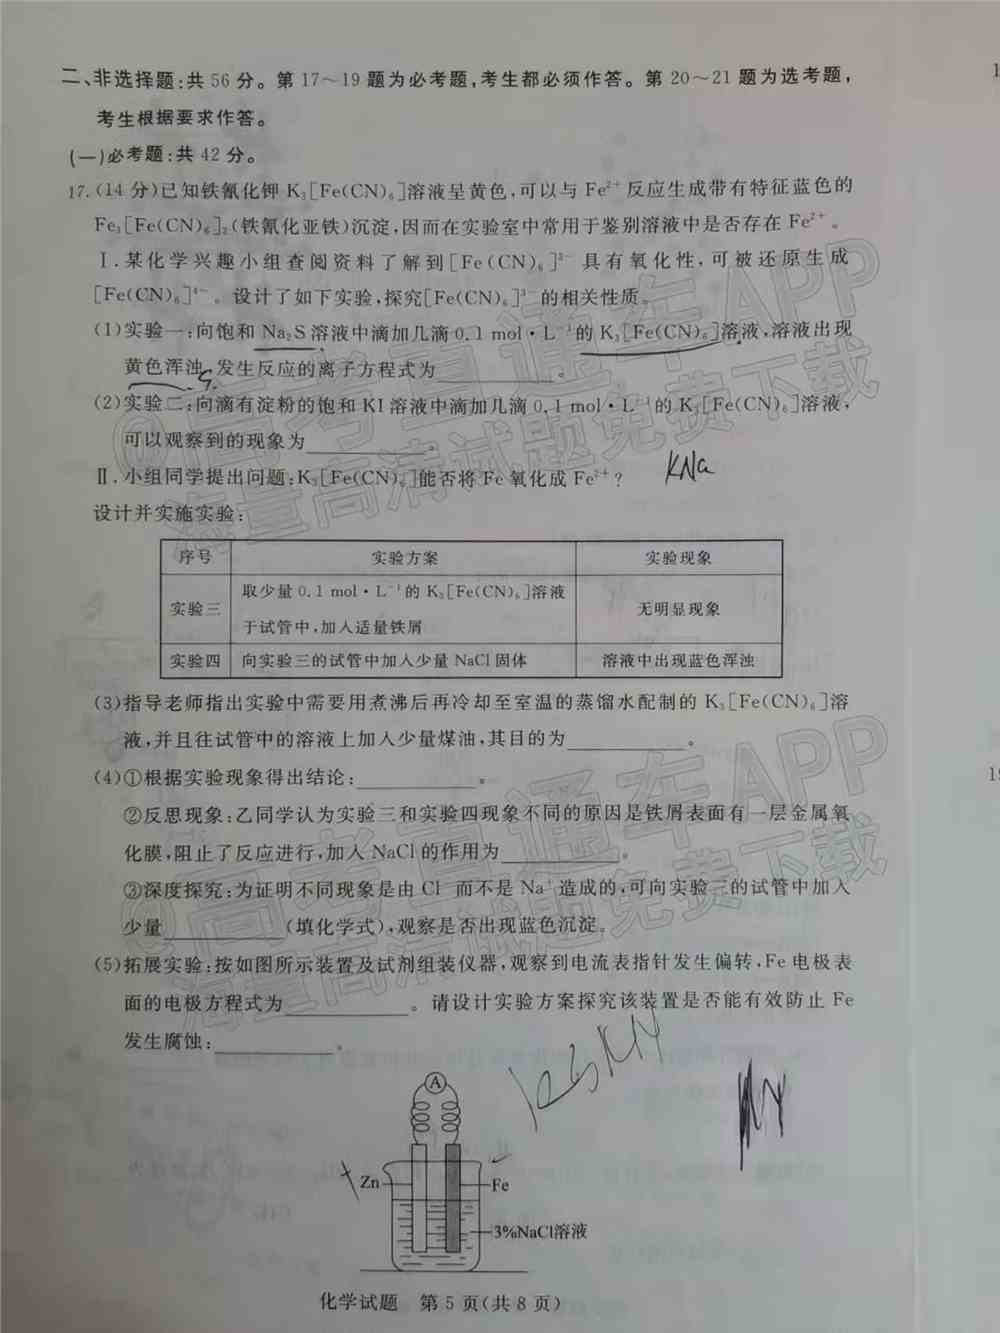 二、非选择题:共 56 分。第 17～19 题为必考题,考生都必须作答。第 20～21 题为选考题,
考生根据要求作答。
(一)必考题:共 42 分。
17.(14 分)已知铁氰化钾 K₃[Fe(CN)₆]溶液呈黄色,可以与 Fe²⁺ 反应生成带有特征蓝色的
Fe₃[Fe(CN)₆]₂(铁氰化亚铁)沉淀,因而在实验室中常用于鉴别溶液中是否存在 Fe²⁺。
Ⅰ.某化学兴趣小组查阅资料了解到[Fe(CN)₆]³⁻ 具有氧化性,可被还原生成
[Fe(CN)₆]⁴⁻。设计了如下实验,探究[Fe(CN)₆]³⁻的相关性质。
(1)实验一:向饱和 Na₂S 溶液中滴加几滴 0.1 mol·L⁻¹的 K₃[Fe(CN)₆]溶液,溶液出现
黄色浑浊,发生反应的离子方程式为__________。
(2)实验二:向滴有淀粉的饱和 KI 溶液中滴加几滴 0.1 mol·L⁻¹的 K₃[Fe(CN)₆]溶液,
可以观察到的现象为__________。
Ⅱ.小组同学提出问题:K₃[Fe(CN)₆]能否将 Fe 氧化成 Fe²⁺?
KNa
设计并实施实验:
序号 实验方案 实验现象
实验三 取少量 0.1 mol·L⁻¹的 K₃[Fe(CN)₆]溶液 无明显现象
于试管中,加入适量铁屑
实验四 向实验三的试管中加入少量 NaCl 固体 溶液中出现蓝色浑浊
(3)指导老师指出实验中需要用煮沸后再冷却至室温的蒸馏水配制的 K₃[Fe(CN)₆]溶
液,并且往试管中的溶液上加入少量煤油,其目的为__________。
(4)①根据实验现象得出结论:__________。
②反思现象:乙同学认为实验三和实验四现象不同的原因是铁屑表面有一层金属氧
化膜,阻止了反应进行,加入 NaCl 的作用为__________。
③深度探究:为证明不同现象是由 Cl⁻ 而不是 Na⁺ 造成的,可向实验三的试管中加入
少量__________(填化学式),观察是否出现蓝色沉淀。
(5)拓展实验:按如图所示装置及试剂组装仪器,观察到电流表指针发生偏转,Fe 电极表
面的电极方程式为__________。请设计实验方案探究该装置是否能有效防止 Fe
发生腐蚀:__________。
A
Zn
Fe
3%NaCl溶液
化学试题 第 5 页(共 8 页)
@高考直通车APP
海量高清试题免费下载
@高考直通车APP
海量高清试题免费下载